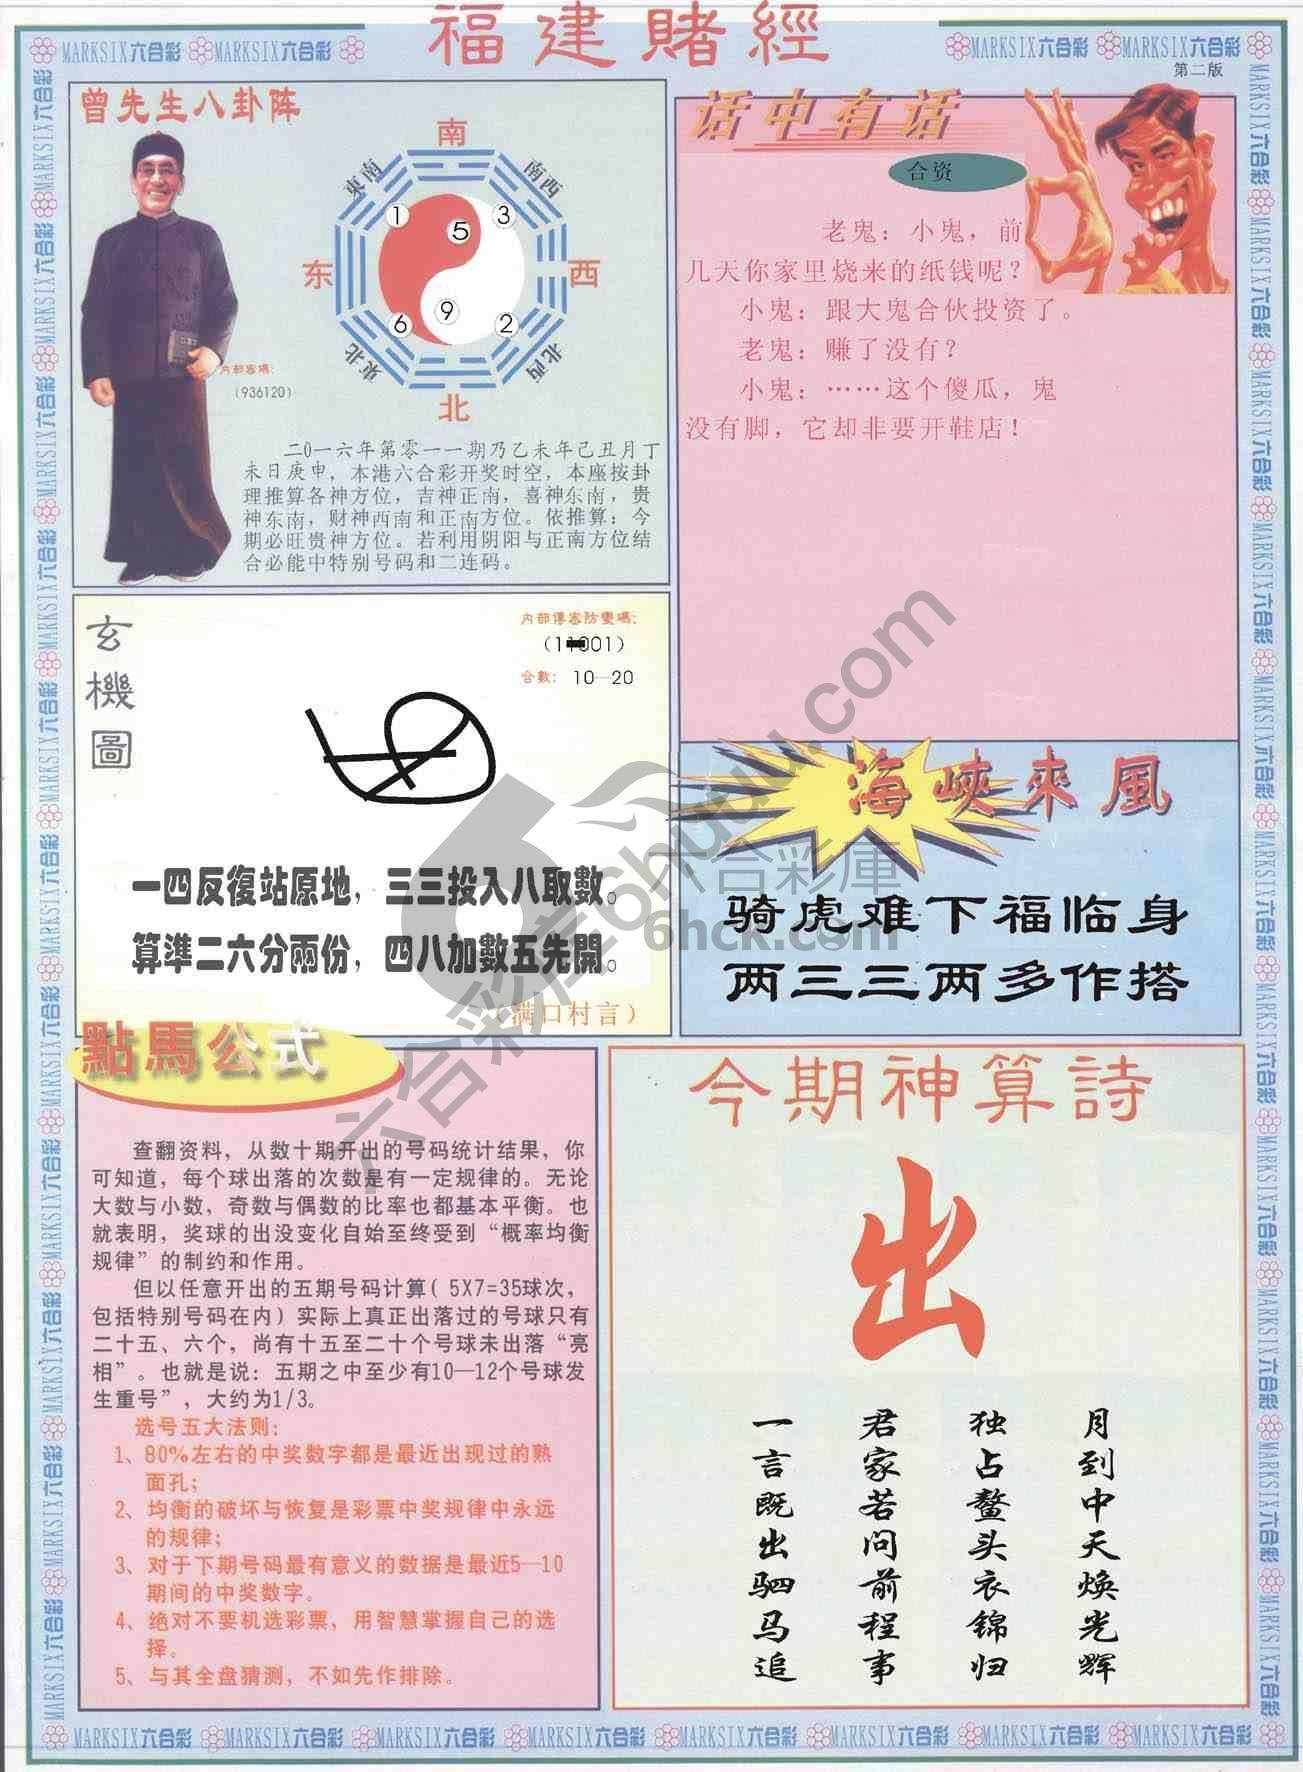 福建賭經
MARKSIX六合彩 MARKSIX六合彩 MARKSIX六合彩 MARKSIX六合彩
第二版
曾先生八卦阵
南
東南
南西
1
3
5
东
西
9
6
2
東北
北西
北
内部密碼：
（936120）
二0一六年第零一一期乃乙未年己丑月丁
未日庚申，本港六合彩开奖时空，本座按卦
理推算各神方位，吉神正南，喜神东南，贵
神东南，财神西南和正南方位。依推算：今
期必旺贵神方位。若利用阴阳与正南方位结
合必能中特别号码和二连码。
话中有话
合资
老鬼：小鬼，前
几天你家里烧来的纸钱呢？
小鬼：跟大鬼合伙投资了。
老鬼：赚了没有？
小鬼：……这个傻瓜，鬼
没有脚，它却非要开鞋店！
玄機圖
内部傳密防變碼：
合數：10—20
一四反復站原地，三三投入八取數。
算準二六分兩份，四八加數五先開。
（满口村言）
海峽來風
骑虎难下福临身
两三三两多作搭
點馬公式
查翻资料，从数十期开出的号码统计结果，你
可知道，每个球出落的次数是有一定规律的。无论
大数与小数，奇数与偶数的比率也都基本平衡。也
就表明，奖球的出没变化自始至终受到“概率均衡
规律”的制约和作用。
但以任意开出的五期号码计算( 5X7=35球次，
包括特别号码在内）实际上真正出落过的号球只有
二十五、六个，尚有十五至二十个号球未出落“亮
相”。也就是说：五期之中至少有10—12个号球发
生重号”，大约为1/3。
选号五大法则：
1、80%左右的中奖数字都是最近出现过的熟
面孔；
2、均衡的破坏与恢复是彩票中奖规律中永远
的规律；
3、对于下期号码最有意义的数据是最近5—10
期间的中奖数字。
4、绝对不要机选彩票，用智慧掌握自己的选
择。
5、与其全盘猜测，不如先作排除。
今期神算詩
出
月到中天焕光辉
独占鳌头衣锦归
君家若问前程事
一言既出驷马追
六合彩库6huquu.com
六合彩庫
6hck.com